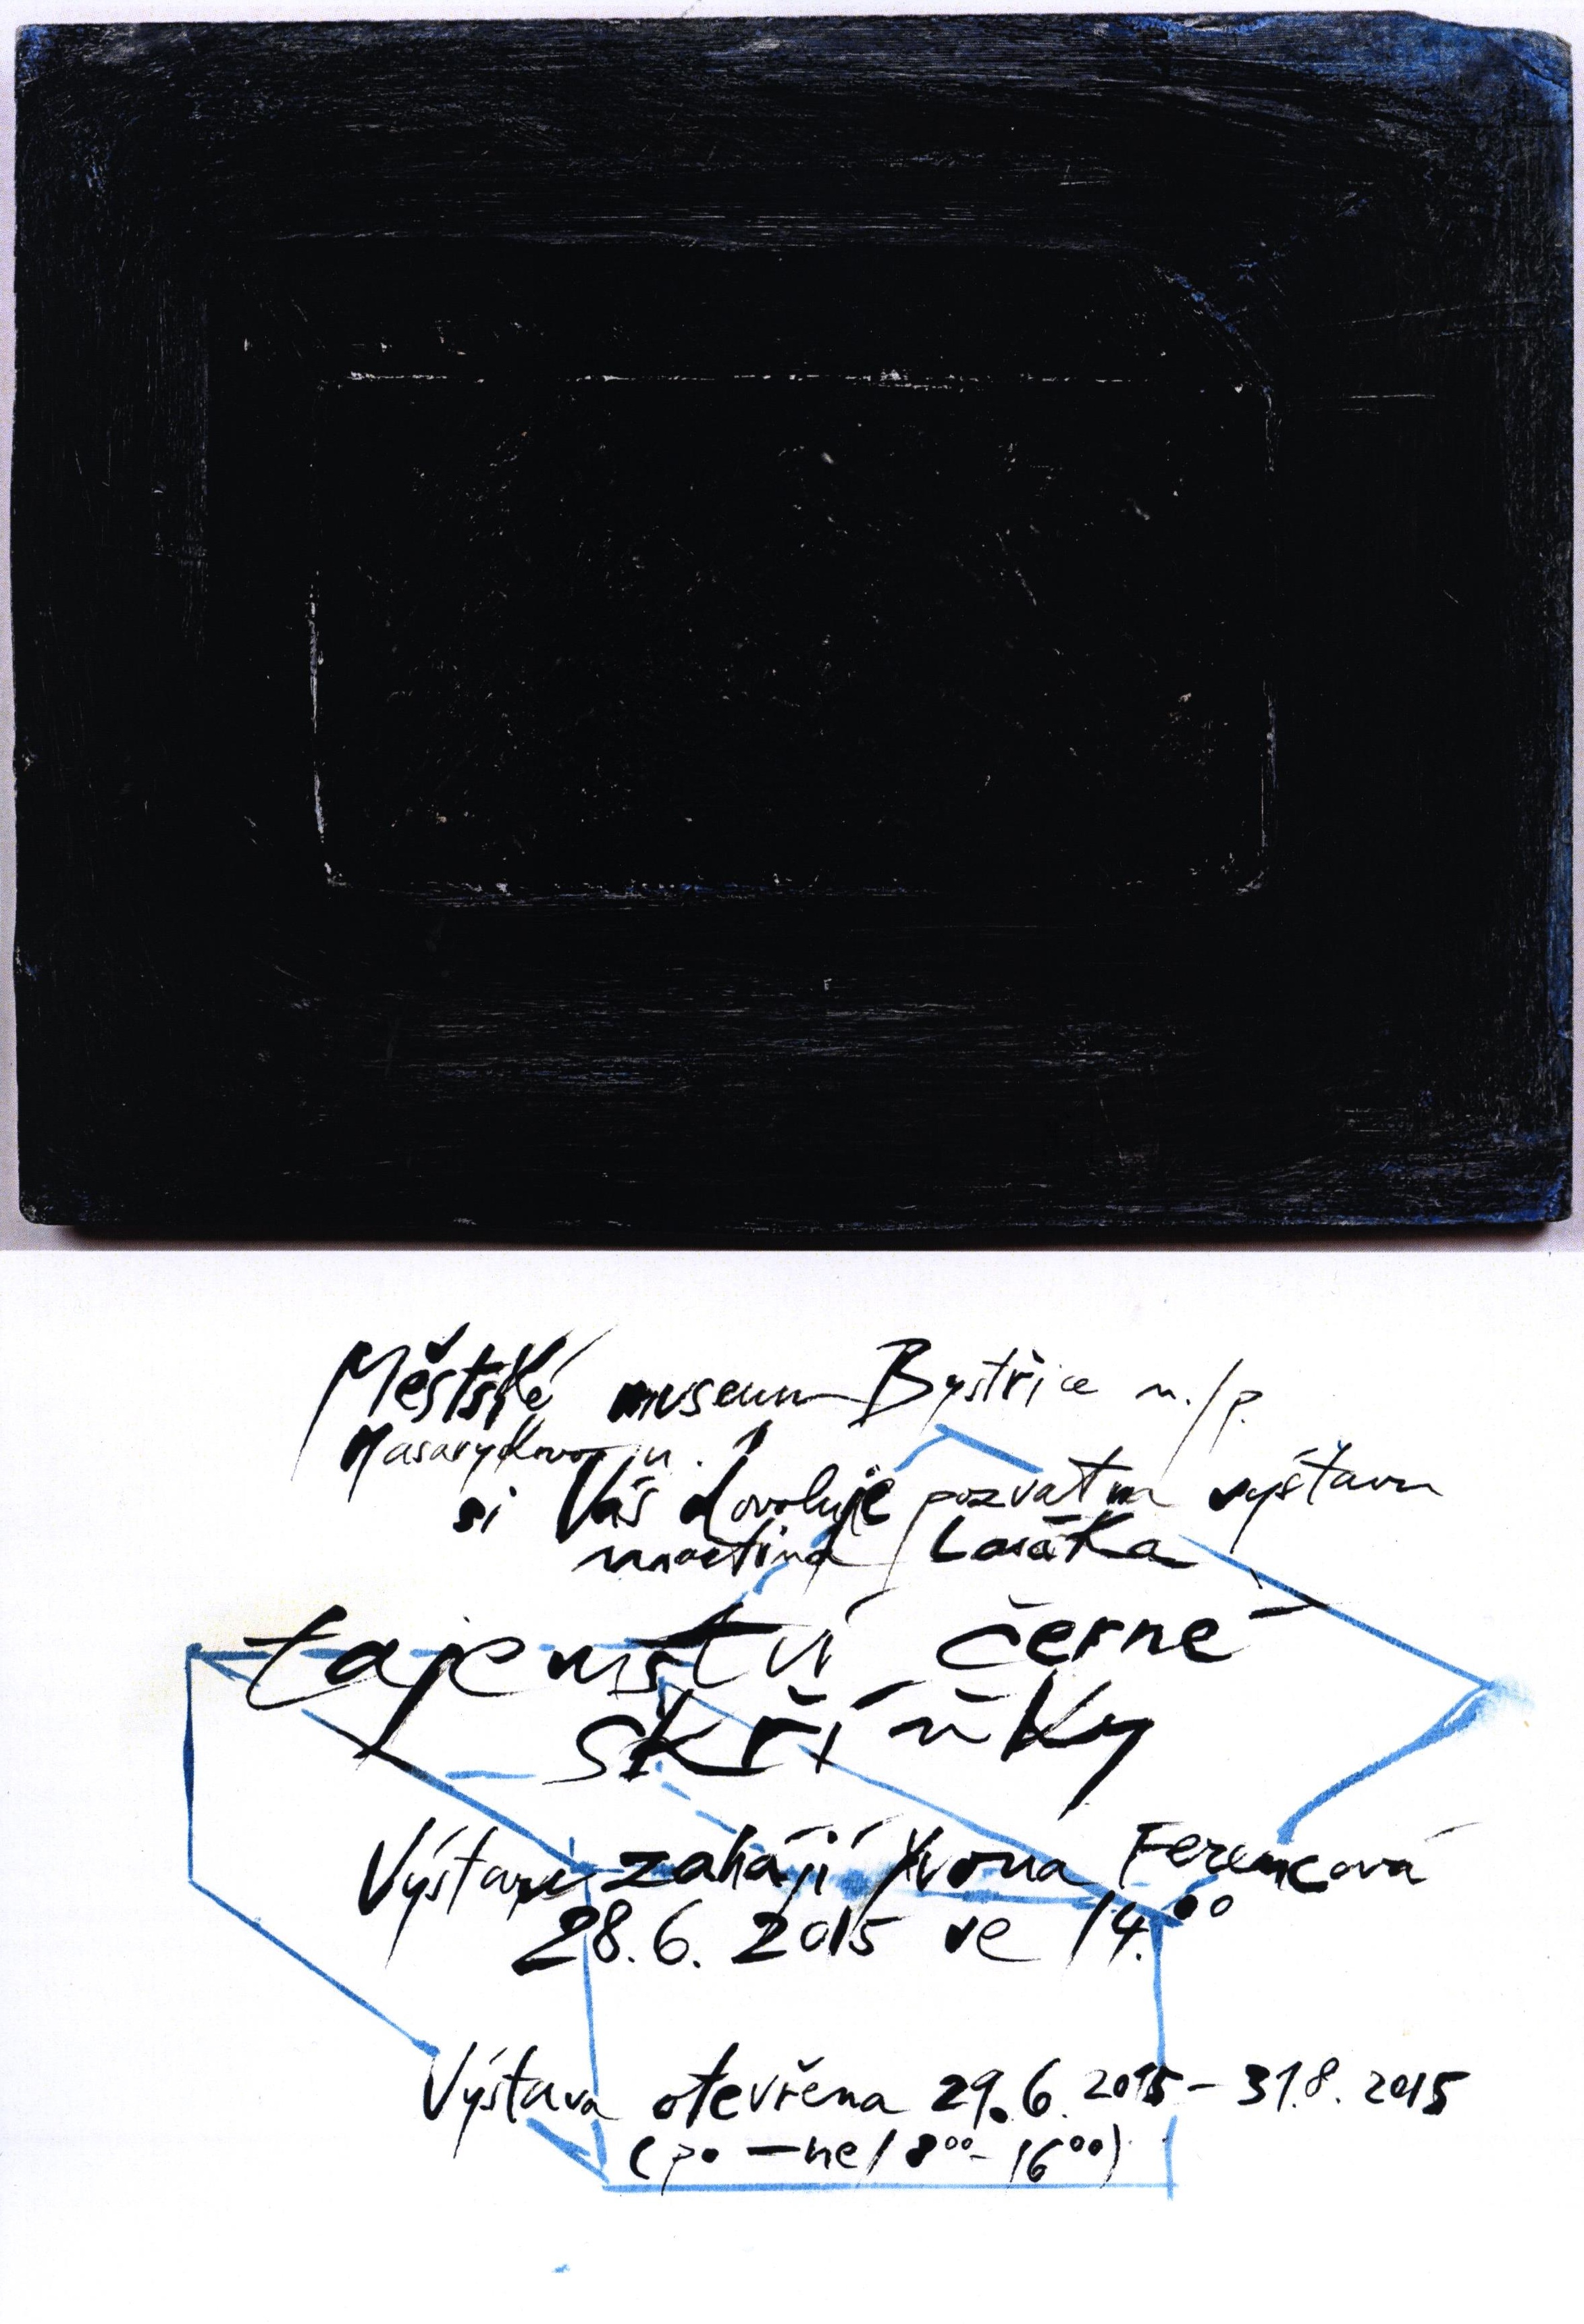 Městské museum Bystřice n./p.
Masarykovo n. 1
si Vás dovoluje pozvat na výstavu
martina Lasáka
tajemství černé
skříňky
Výstavu zahájí Yvona Ferencová
28.6. 2015 ve 14.00
Výstava otevřena 29.6.2015 - 31.8.2015
(po - ne / 8 00 - 16 00)